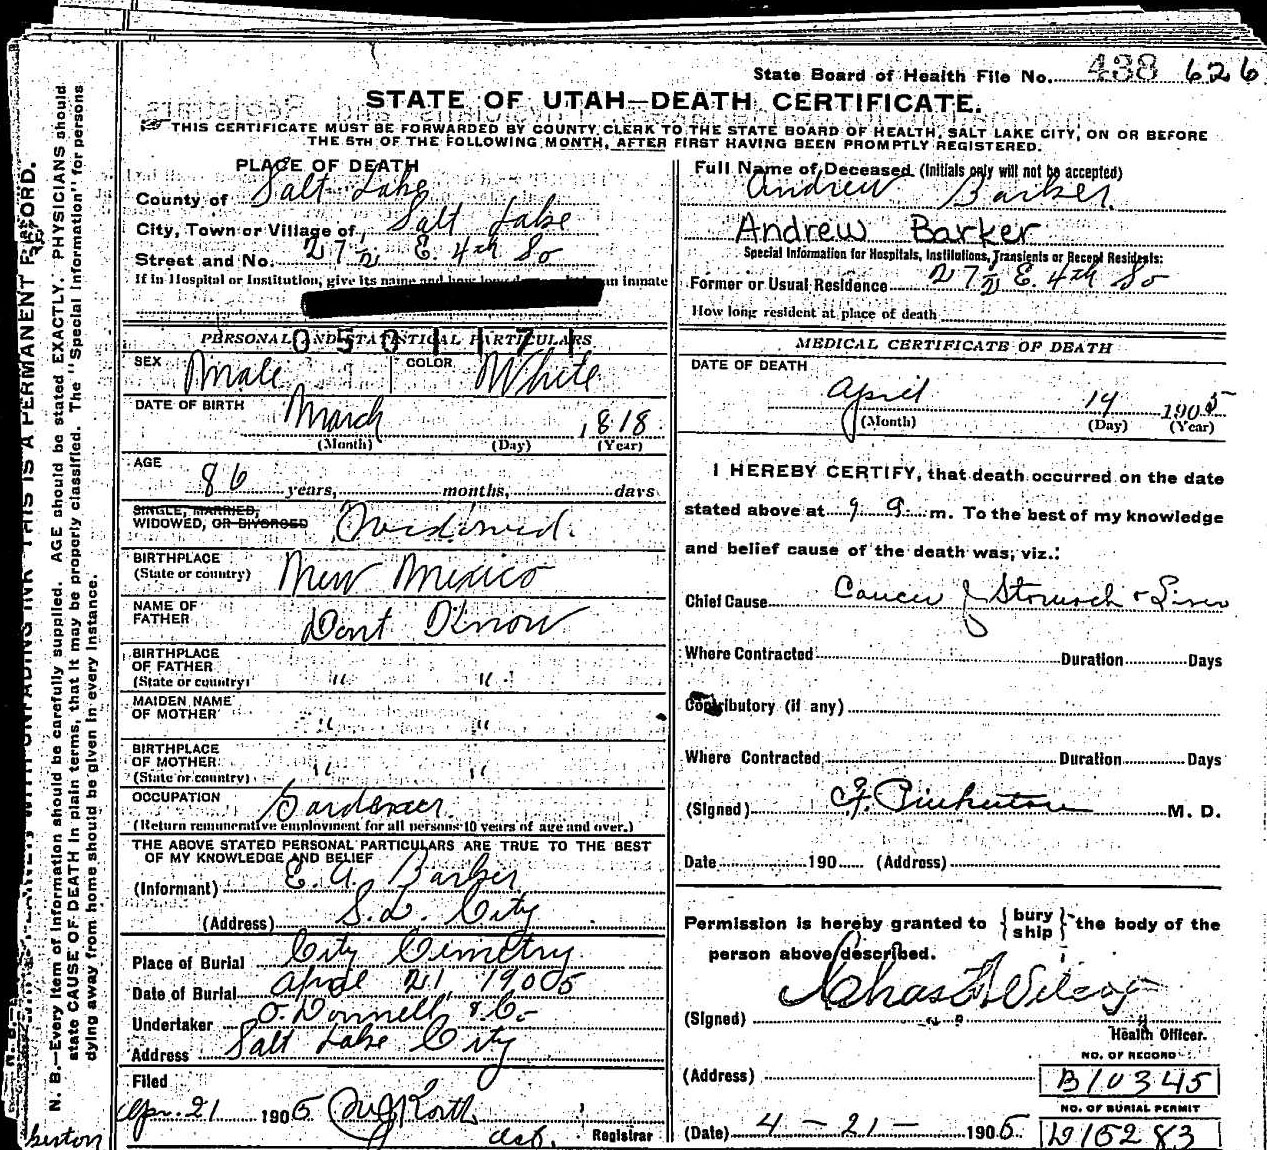 State Board of Health File No. 438 626
STATE OF UTAH—DEATH CERTIFICATE.
THIS CERTIFICATE MUST BE FORWARDED BY COUNTY CLERK TO THE STATE BOARD OF HEALTH, SALT LAKE CITY, ON OR BEFORE
THE 5TH OF THE FOLLOWING MONTH, AFTER FIRST HAVING BEEN PROMPTLY REGISTERED.
PLACE OF DEATH
County of Salt Lake
City, Town or Village of Salt Lake
Street and No. 27½ E. 4th So
If in Hospital or Institution, give its name and inmate
PERSONAL AND STATISTICAL PARTICULARS
0501171
SEX Male COLOR White
DATE OF BIRTH March 1818
(Month) (Day) (Year)
AGE
86 years, months, days
SINGLE, MARRIED,
WIDOWED, OR DIVORCED Widowed.
BIRTHPLACE
(State or country) New Mexico
NAME OF
FATHER Dont Know
BIRTHPLACE
OF FATHER
(State or country) " "
MAIDEN NAME
OF MOTHER " "
BIRTHPLACE
OF MOTHER
(State or country) " "
OCCUPATION Gardener
(Return remunerative employment for all persons 10 years of age and over.)
THE ABOVE STATED PERSONAL PARTICULARS ARE TRUE TO THE BEST
OF MY KNOWLEDGE AND BELIEF
(Informant) E. A. Barker
(Address) S. L. City
Place of Burial City Cemetry
Date of Burial April 21 19005
Undertaker O. Donnell & Co
Address Salt Lake City
Filed
Apr. 21 1905
Registrar
Full Name of Deceased (Initials only will not be accepted)
Andrew Barker.
Andrew Barker
Special Information for Hospitals, Institutions, Transients or Recent Residents:
Former or Usual Residence 27½ E. 4th So
How long resident at place of death
MEDICAL CERTIFICATE OF DEATH
DATE OF DEATH
April 19 1905
(Month) (Day) (Year)
I HEREBY CERTIFY, that death occurred on the date
stated above at 9 a. m. To the best of my knowledge
and belief cause of the death was, viz.:
Chief Cause Cancer of Stomach & Liver
Where Contracted Duration Days
Contributory (if any)
Where Contracted Duration Days
(Signed) Pinkerton M. D.
Date 190 (Address)
Permission is hereby granted to {bury
ship} the body of the
person above described.
(Signed) Chas Wilcox
Health Officer.
NO. OF RECORD
(Address) B10345
NO. OF BURIAL PERMIT
(Date) 4 - 21 - 1905 D15283
N. B.—Every item of information should be carefully supplied. AGE should be stated EXACTLY. PHYSICIANS should
state CAUSE OF DEATH in plain terms, that it may be properly classified. The "Special Information" for persons
dying away from home should be given in every instance.
THIS IS A PERMANENT RECORD.